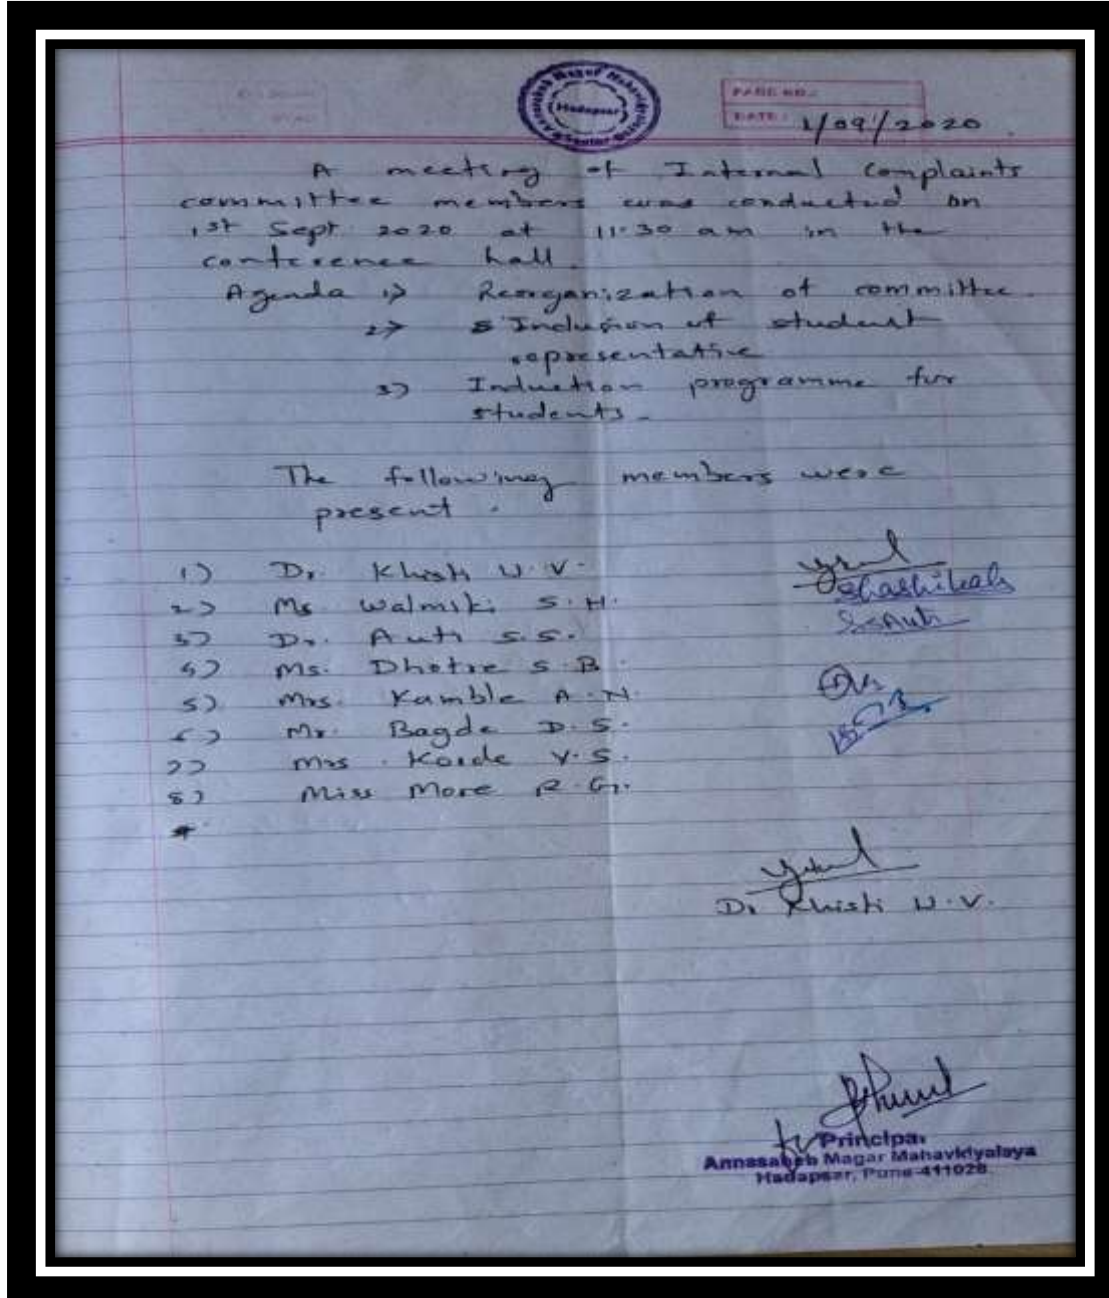 Annasaheb Magar Mahavidyalaya
Hadapsar
PAGE NO.:
DATE: 1/09/2020
A meeting of Internal Complaints
committee members was conducted on
1st Sept 2020 at 11.30 am in the
conference hall.
Agenda 1) Reorganization of committee.
2) Inclusion of student
representative
3) Induction programme for
students.
The following members were
present.
1) Dr. Khisti U.V.
2) Ms Walmiki S.H.
Shashikala
3) Dr. Auti S.S.
SSAuti
4) Ms. Dhotre S.B.
5) Mrs. Kamble A.N.
6) Mr. Bagde D.S.
7) Mrs. Korde V.S.
8) Miss More R.G.
Dr Khisti U.V.
Principal
Annasaheb Magar Mahavidyalaya
Hadapsar, Pune-411028.